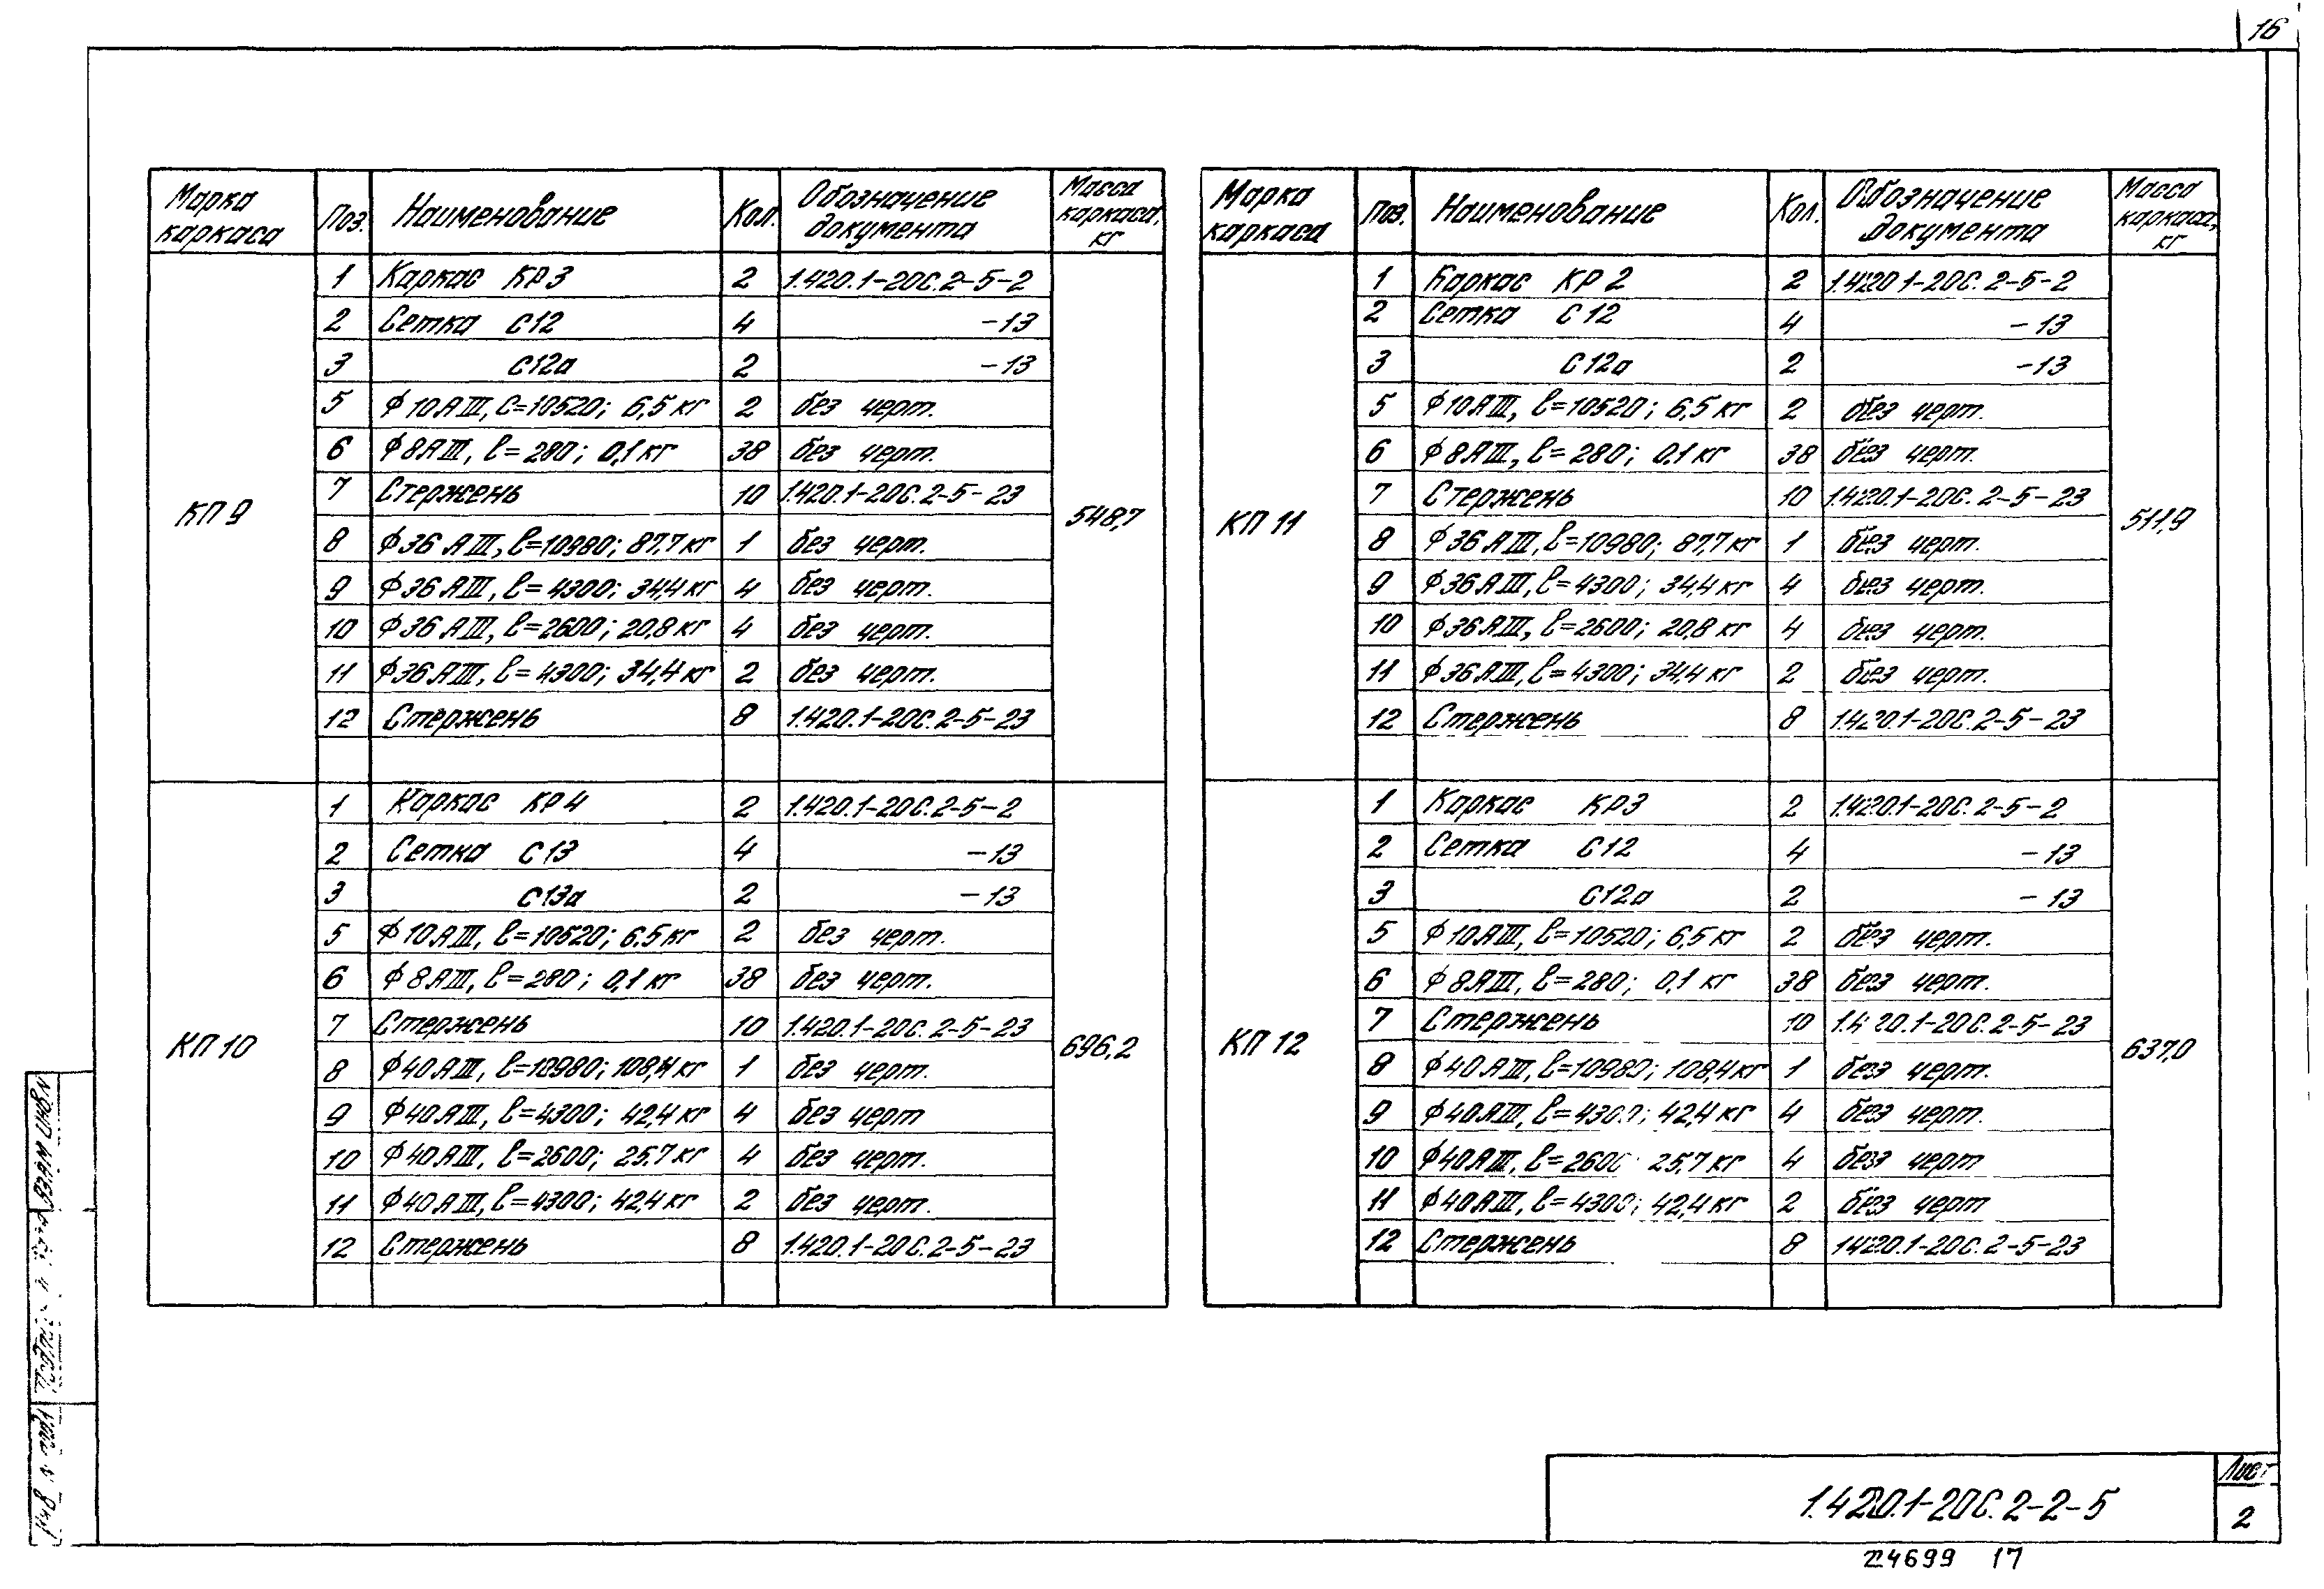 16
Марка каркаса Поз. Наименование Кол. Обозначение документа Масса каркаса, кг
КП 9 548,7
1 Каркас КР3 2 1.420.1-20С.2-5-2
2 Сетка С12 4 -13
3 С12а 2 -13
5 ϕ10АIII, С=10520; 6,5 кг 2 без черт.
6 ϕ8АIII, ℓ=280; 0,1 кг 38 без черт.
7 Стержень 10 1.420.1-20С.2-5-23
8 ϕ36АIII, ℓ=10980; 87,7 кг 1 без черт.
9 ϕ36АIII, ℓ=4300; 34,4 кг 4 без черт.
10 ϕ36АIII, ℓ=2600; 20,8 кг 4 без черт.
11 ϕ36АIII, ℓ=4300; 34,4 кг 2 без черт.
12 Стержень 8 1.420.1-20С.2-5-23
КП 10 696,2
1 Каркас КР4 2 1.420.1-20С.2-5-2
2 Сетка С13 4 -13
3 С13а 2 -13
5 ϕ10АIII, ℓ=10520; 6.5 кг 2 без черт.
6 ϕ8АIII, ℓ=280; 0,1 кг 38 без черт.
7 Стержень 10 1.420.1-20С.2-5-23
8 ϕ40АIII, ℓ=10980; 108,4 кг 1 без черт.
9 ϕ40АIII, ℓ=4300; 42,4 кг 4 без черт
10 ϕ40АIII, ℓ=2600; 25,7 кг 4 без черт.
11 ϕ40АIII, ℓ=4300; 42,4 кг 2 без черт.
12 Стержень 8 1.420.1-20С.2-5-23
Марка каркаса Поз. Наименование Кол. Обозначение документа Масса каркаса, кг
КП 11 511,9
1 Каркас КР2 2 1.420.1-20С.2-5-2
2 Сетка С12 4 -13
3 С12а 2 -13
5 ϕ10АIII, ℓ=10520; 6,5 кг 2 без черт.
6 ϕ8АIII, ℓ=280; 0,1 кг 38 без черт.
7 Стержень 10 1.420.1-20С.2-5-23
8 ϕ36АIII, ℓ=10980; 87,7 кг 1 без черт.
9 ϕ36АIII, ℓ=4300; 34,4 кг 4 без черт.
10 ϕ36АIII, ℓ=2600; 20,8 кг 4 без черт.
11 ϕ36АIII, ℓ=4300; 34,4 кг 2 без черт.
12 Стержень 8 1.420.1-20С.2-5-23
КП 12 637,0
1 Каркас КР3 2 1.420.1-20С.2-5-2
2 Сетка С12 4 -13
3 С12а 2 -13
5 ϕ10АIII, ℓ=10520; 6,5 кг 2 без черт.
6 ϕ8АIII, ℓ=280; 0,1 кг 38 без черт.
7 Стержень 10 1.420.1-20С.2-5-23
8 ϕ40АIII, ℓ=10980; 108,4 кг 1 без черт.
9 ϕ40АIII, ℓ=4300; 42,4 кг 4 без черт.
10 ϕ40АIII, ℓ=2600 25,7 кг 4 без черт
11 ϕ40АIII, ℓ=4300; 42,4 кг 2 без черт
12 Стержень 8 1.420.1-20С.2-5-23
1.420.1-20С.2-2-5
Лист
2
24699 17